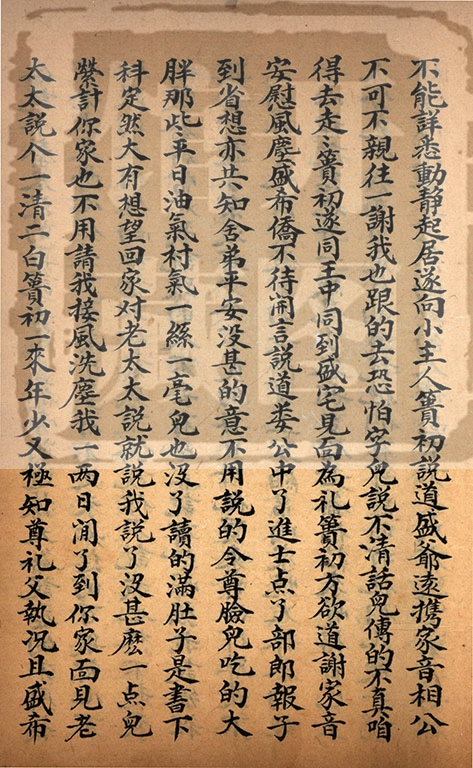 不能詳悉動静起居遂向小主人簣初説道盛爺遠携家音相公
不可不親往一謝我也跟的去恐怕字兒説不清話兒傳的不真咱
得去走〻簣初遂同王中同到盛宅見面為礼簣初方欲道謝家音
安慰風塵盛希僑不待開言説道娄公中了進士点了部郎報子
到省想亦共知舍弟平安没甚的意不用説的令尊臉兒吃的大
胖那些平日油氣村氣一絲一毫兒也没了讀的滿肚子是書下
科定然大有想望回家对老太太説就説我説了没甚麽一点兒
縈計你家也不用請我接風洗塵我一两日閒了到你家面見老
太太説个一清二白簣初一來年少又極知尊礼父執况且盛希